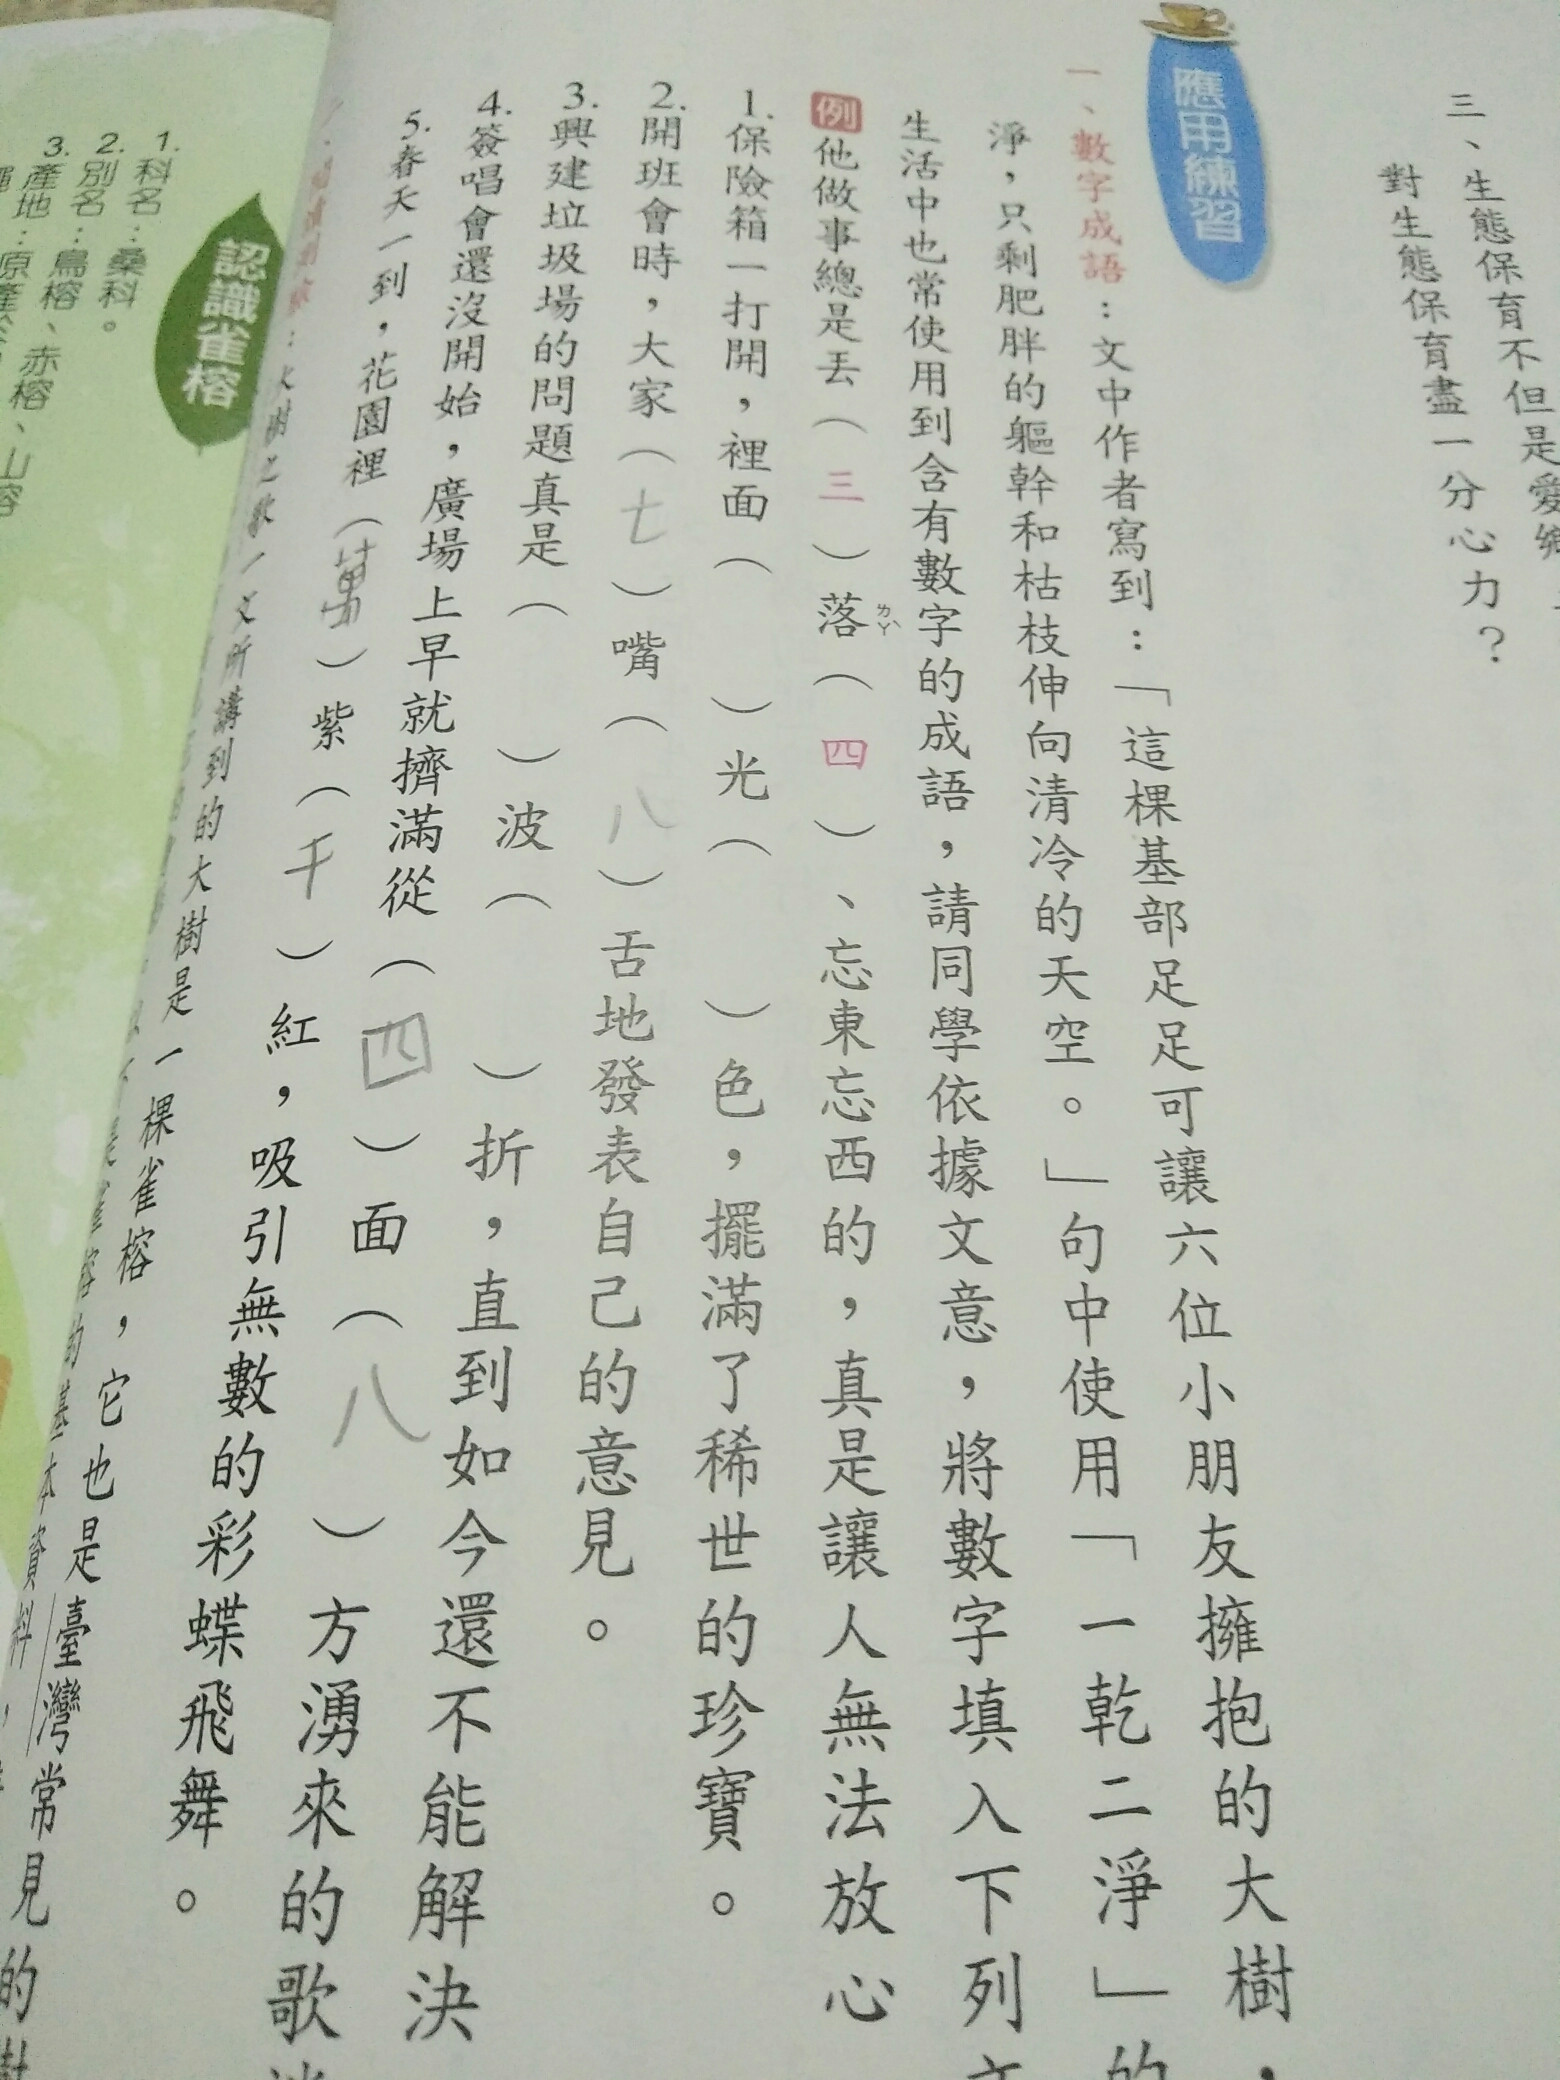 三、生態保育不但是愛鄉
對生態保育盡一分心力？
應用練習
一、數字成語：文中作者寫到：「這棵基部足足可讓六位小朋友擁抱的大樹，
淨，只剩肥胖的軀幹和枯枝伸向清冷的天空。」句中使用「一乾二淨」的
生活中也常使用到含有數字的成語，請同學依據文意，將數字填入下列
例他做事總是丟（三）落（四）、忘東忘西的，真是讓人無法放心
ㄌㄚˋ
1.保險箱一打開，裡面（　）光（　）色，擺滿了稀世的珍寶。
2.開班會時，大家（七）嘴（八）舌地發表自己的意見。
3.興建垃圾場的問題真是（　）波（　）折，直到如今還不能解決
4.簽唱會還沒開始，廣場上早就擠滿從（四）面（八）方湧來的歌迷
5.春天一到，花園裡（萬）紫（千）紅，吸引無數的彩蝶飛舞。
：大樹之歌一文所講到的大樹是一棵雀榕，它也是臺灣常見的樹
雀榕的基本資料，
認識雀榕
1.科名：桑科。
2.別名：鳥榕、赤榕、山榕
3.產地：原產